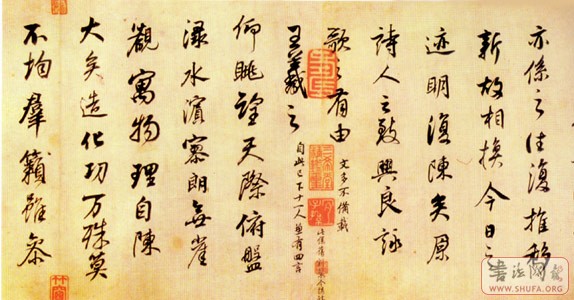 亦係之往復推移
新故相換今日之
迹明復陳矣原
詩人之致興良詠
歌之有由
文多不備載
王羲之
自此已下十一人並有四言
仰眺望天際俯盤
淥水濱寥朗無崖
觀寓物理自陳
大矣造化功万殊莫
不均羣籟雖参
書法网
WWW.SHUFA.ORG